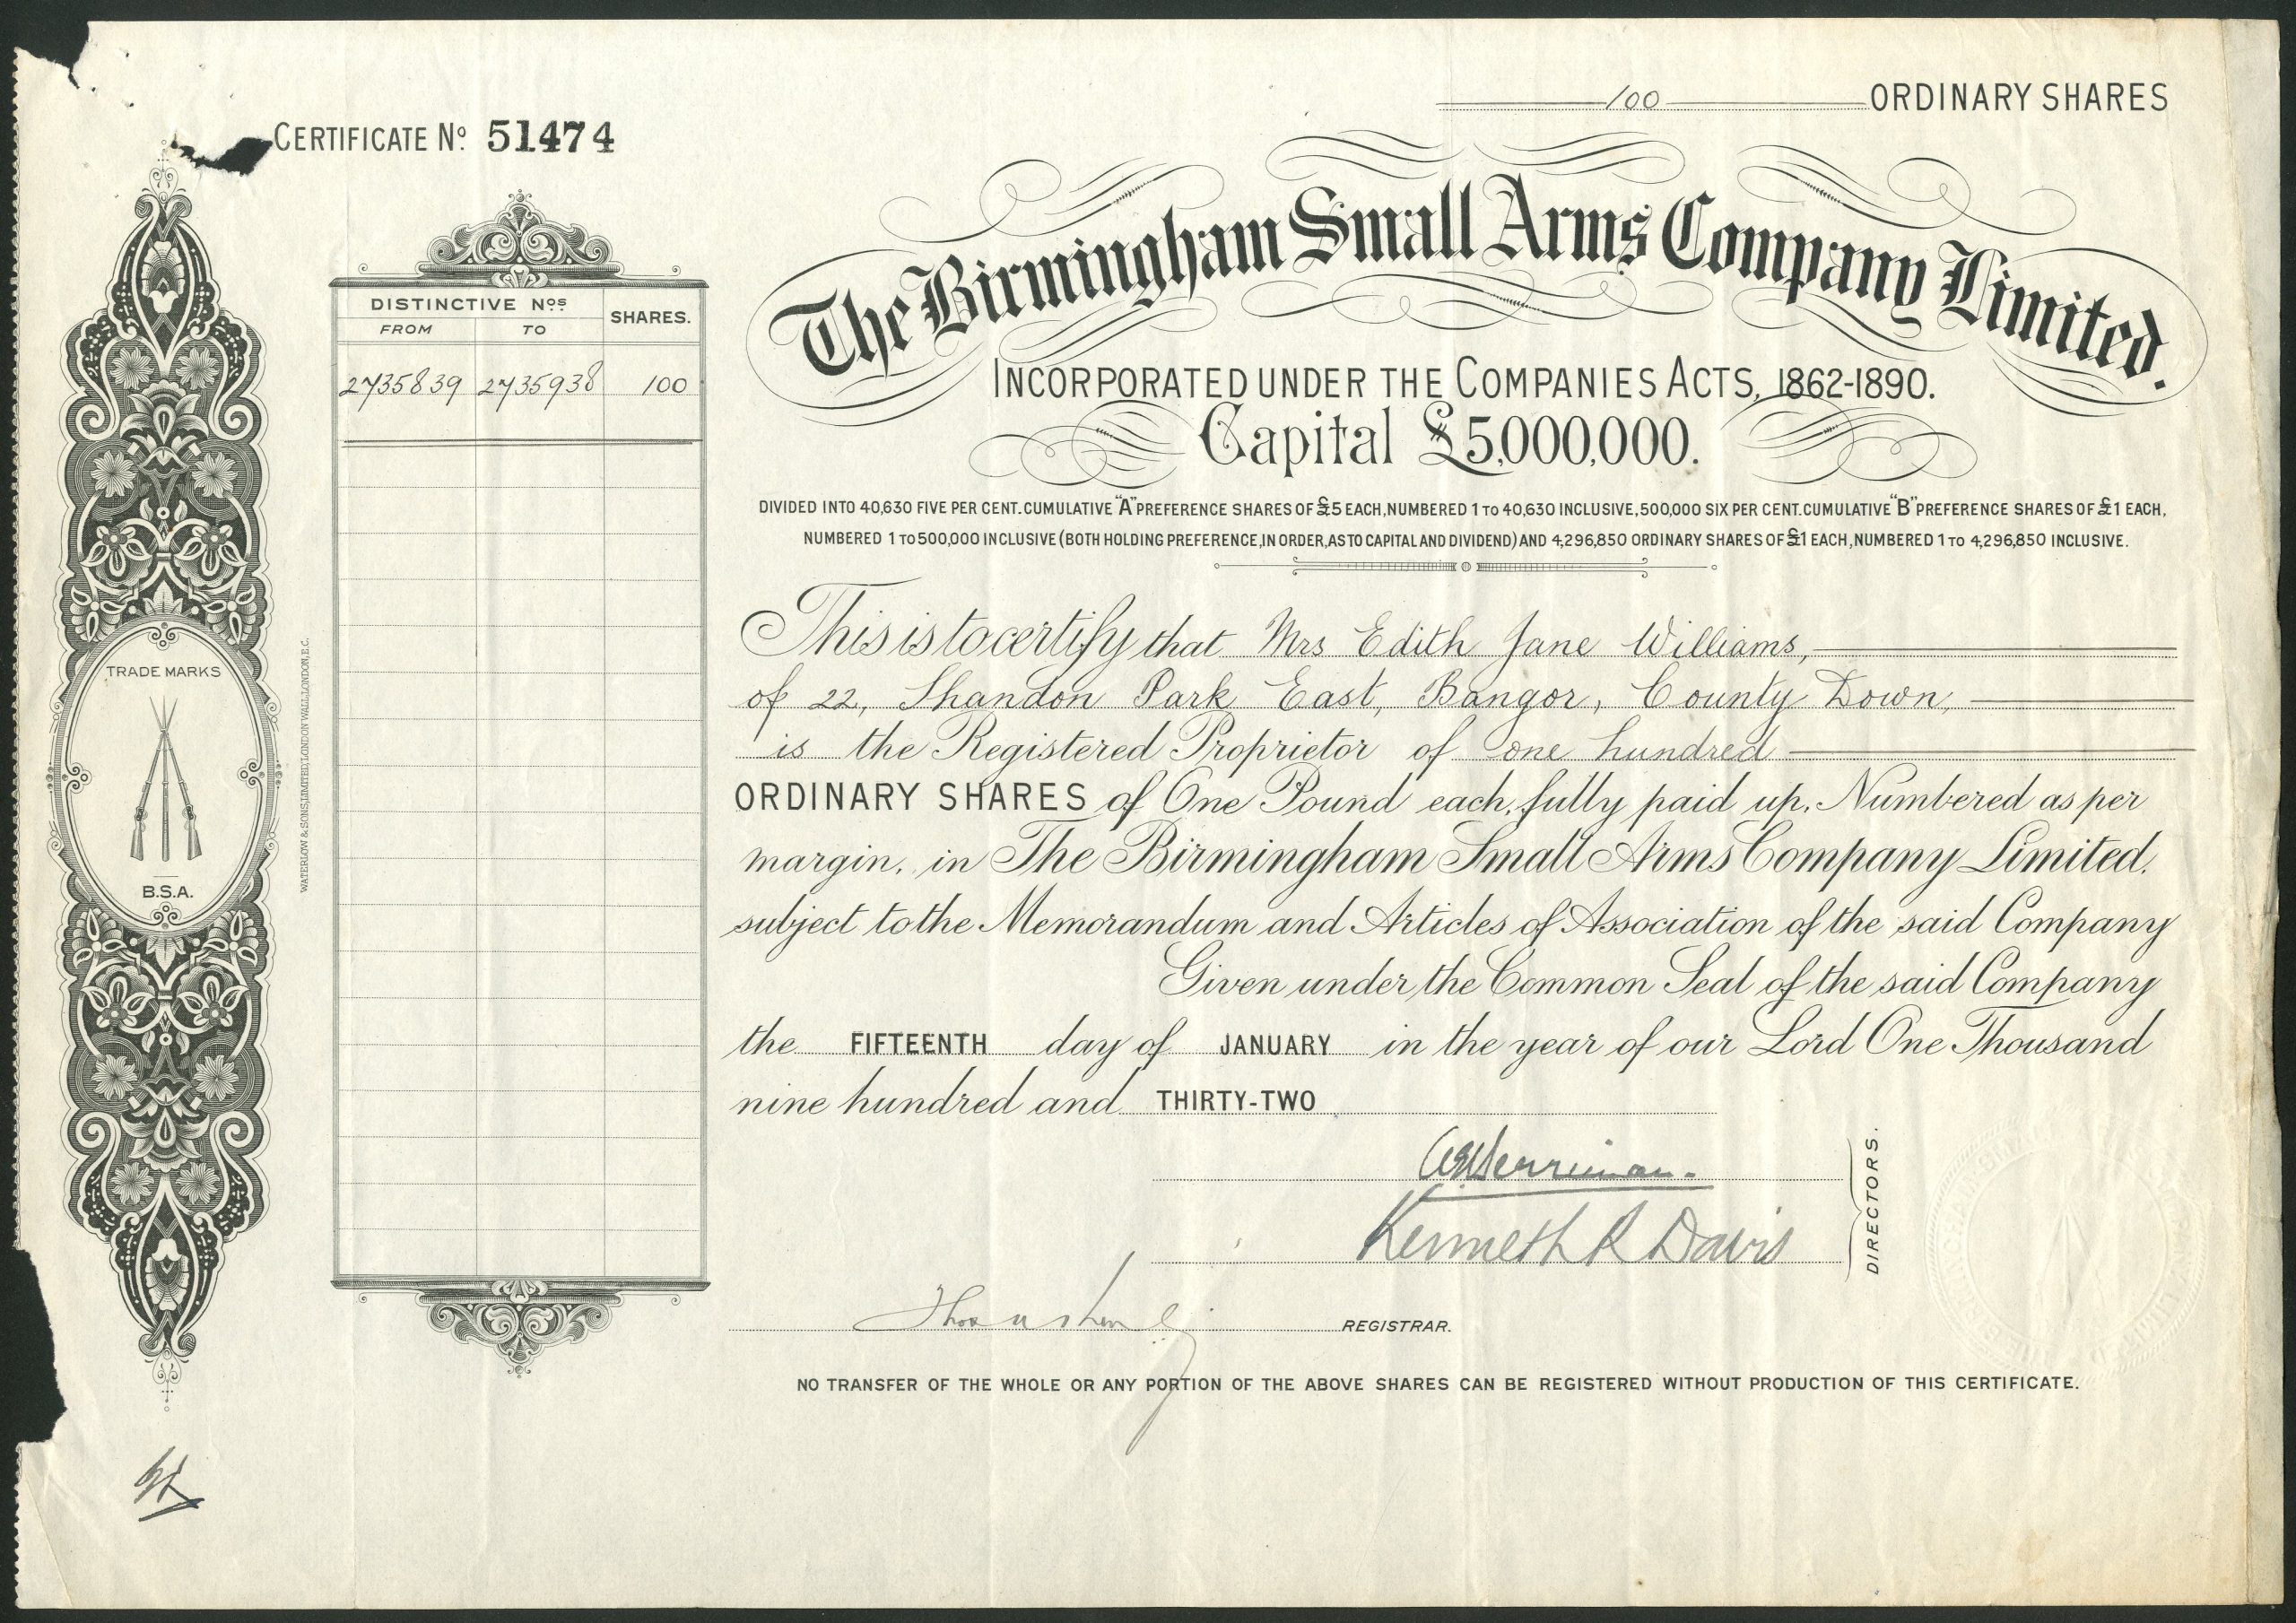 100 ORDINARY SHARES
CERTIFICATE No. 51474
The Birmingham Small Arms Company Limited.
INCORPORATED UNDER THE COMPANIES ACTS, 1862-1890.
Capital £5,000,000.
DIVIDED INTO 40,630 FIVE PER CENT. CUMULATIVE "A" PREFERENCE SHARES OF £5 EACH, NUMBERED 1 TO 40,630 INCLUSIVE, 500,000 SIX PER CENT. CUMULATIVE "B" PREFERENCE SHARES OF £1 EACH,
NUMBERED 1 TO 500,000 INCLUSIVE (BOTH HOLDING PREFERENCE, IN ORDER, AS TO CAPITAL AND DIVIDEND) AND 4,296,850 ORDINARY SHARES OF £1 EACH, NUMBERED 1 TO 4,296,850 INCLUSIVE.
DISTINCTIVE Nos. SHARES.
FROM TO
2735839 2735938 100
TRADE MARKS
B.S.A.
WATERLOW & SONS, LIMITED, LONDON WALL, LONDON, E.C.
This is to certify that Mrs Edith Jane Williams,
of 22, Shandon Park East, Bangor, County Down,
is the Registered Proprietor of one hundred
ORDINARY SHARES of One Pound each, fully paid up, Numbered as per
margin, in The Birmingham Small Arms Company Limited,
subject to the Memorandum and Articles of Association of the said Company
Given under the Common Seal of the said Company
the FIFTEENTH day of JANUARY in the year of our Lord One Thousand
nine hundred and THIRTY-TWO
Kenneth R Davis
DIRECTORS.
REGISTRAR.
NO TRANSFER OF THE WHOLE OR ANY PORTION OF THE ABOVE SHARES CAN BE REGISTERED WITHOUT PRODUCTION OF THIS CERTIFICATE.